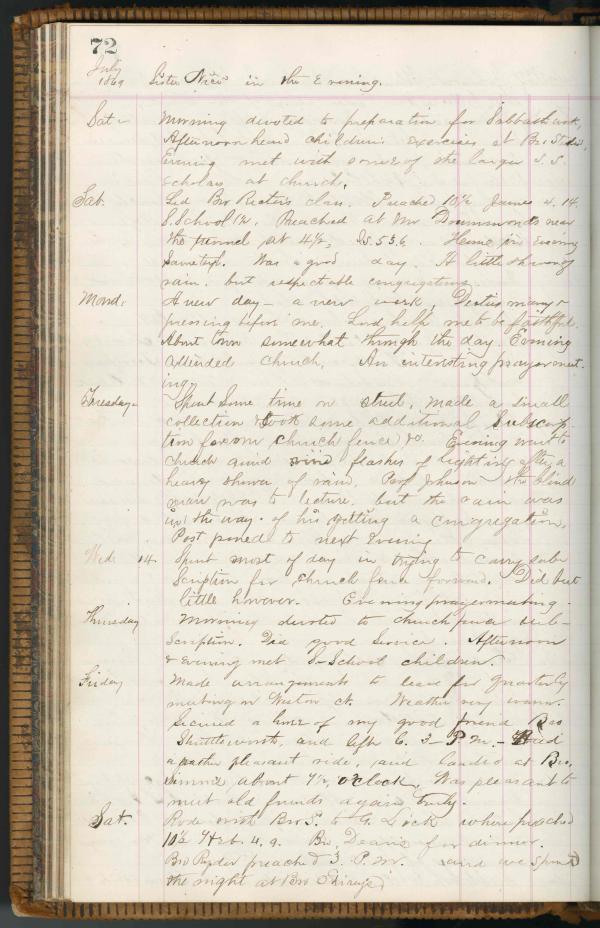 72
July
1869 Sister Nice in the Evening.
Sat - Morning devoted to preparation for Sabbath work,
Afternoon heard children's exercises at Bro
Evening met with some of the larger S. S.
scholars at church.
Sat. Led Bro class. Preached 10½ James 4. 14.
S. School 12. Preached at Mr Drummonds near
the tunnel at 4½, Is. 53.6. Home in Evening
Was a good day. A little showery
rain, but respectable congregations.
Mond. A new day - a new work, Duties many &
pressing before me. Lord help me to be faithful.
About town somewhat through the day. Evening
attended church. An interesting prayer meet-
ing
Tuesday - Spent some time on street, made a small
collection & took some additional subscrip-
tion for our church fence &c. Evening went to
church amid flashes of lightning after a
heavy shower of rain. Prof Johnson the blind
man was to lecture. but the rain was
in the way of his getting a congregation,
Post poned to next Evening
Wed. 14. Spent most of day in trying to carry sub-
scription for church fence forward. Did but
little however. Evening prayer meeting -
Thursday Morning devoted to church fence sub-
scription. Did good service. Afternoon
& Evening met S-School children.
Friday Made arrangements to leave for Quarterly
meeting on Weston ct. Weather very warm.
Secured a horse of my good friend Bro
Shuttleworth, and left C. 3 - P. M. - Had
a rather pleasant ride, and landed at Bro,
about 7½, o'clock, Was pleasant to
meet old friends again truly.
Sat. Rode with Bro S. to G. Lick where preached
10½ Heb. 4. 9. Bro. Deans for dinner.
Bro Ryder preached 3. P. M. and we spent
the night at Bro